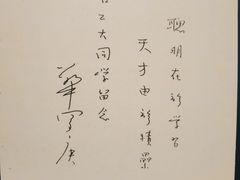 聰明在於学習
天才由於積累
工大同学留念
華罗庚